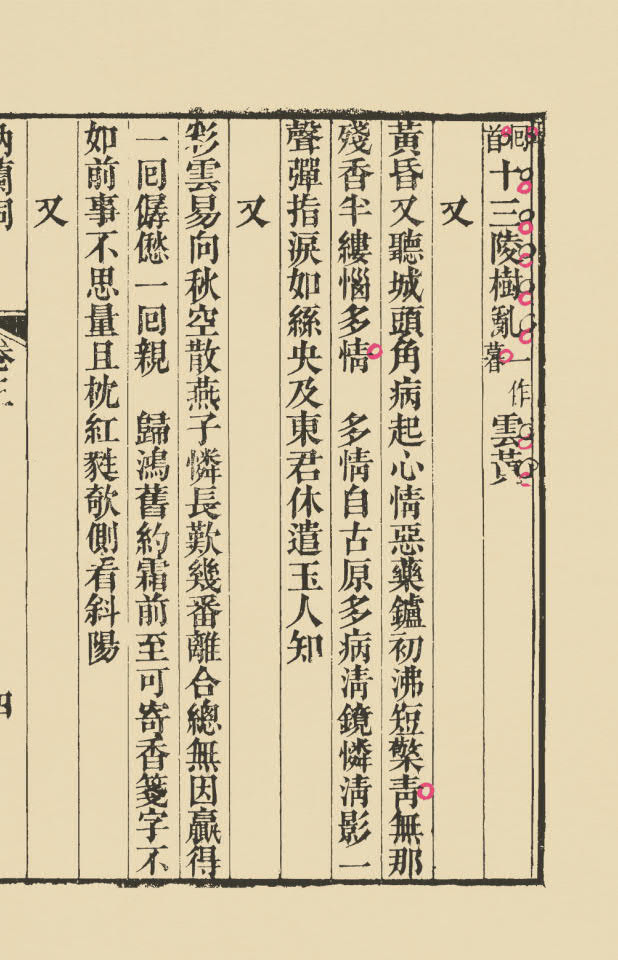 囘首十三陵樹亂一作暮雲黃
又
黃昏又聽城頭角病起心情惡藥鑪初沸短檠青無那
殘香半縷惱多情　多情自古原多病清鏡憐清影一
聲彈指淚如絲央及東君休遣玉人知
又
彩雲易向秋空散燕子憐長歎幾番離合總無因贏得
一囘僝僽一囘親　歸鴻舊約霜前至可寄香箋字不
如前事不思量且枕紅蕤欹側看斜陽
又
納蘭詞　卷三　四